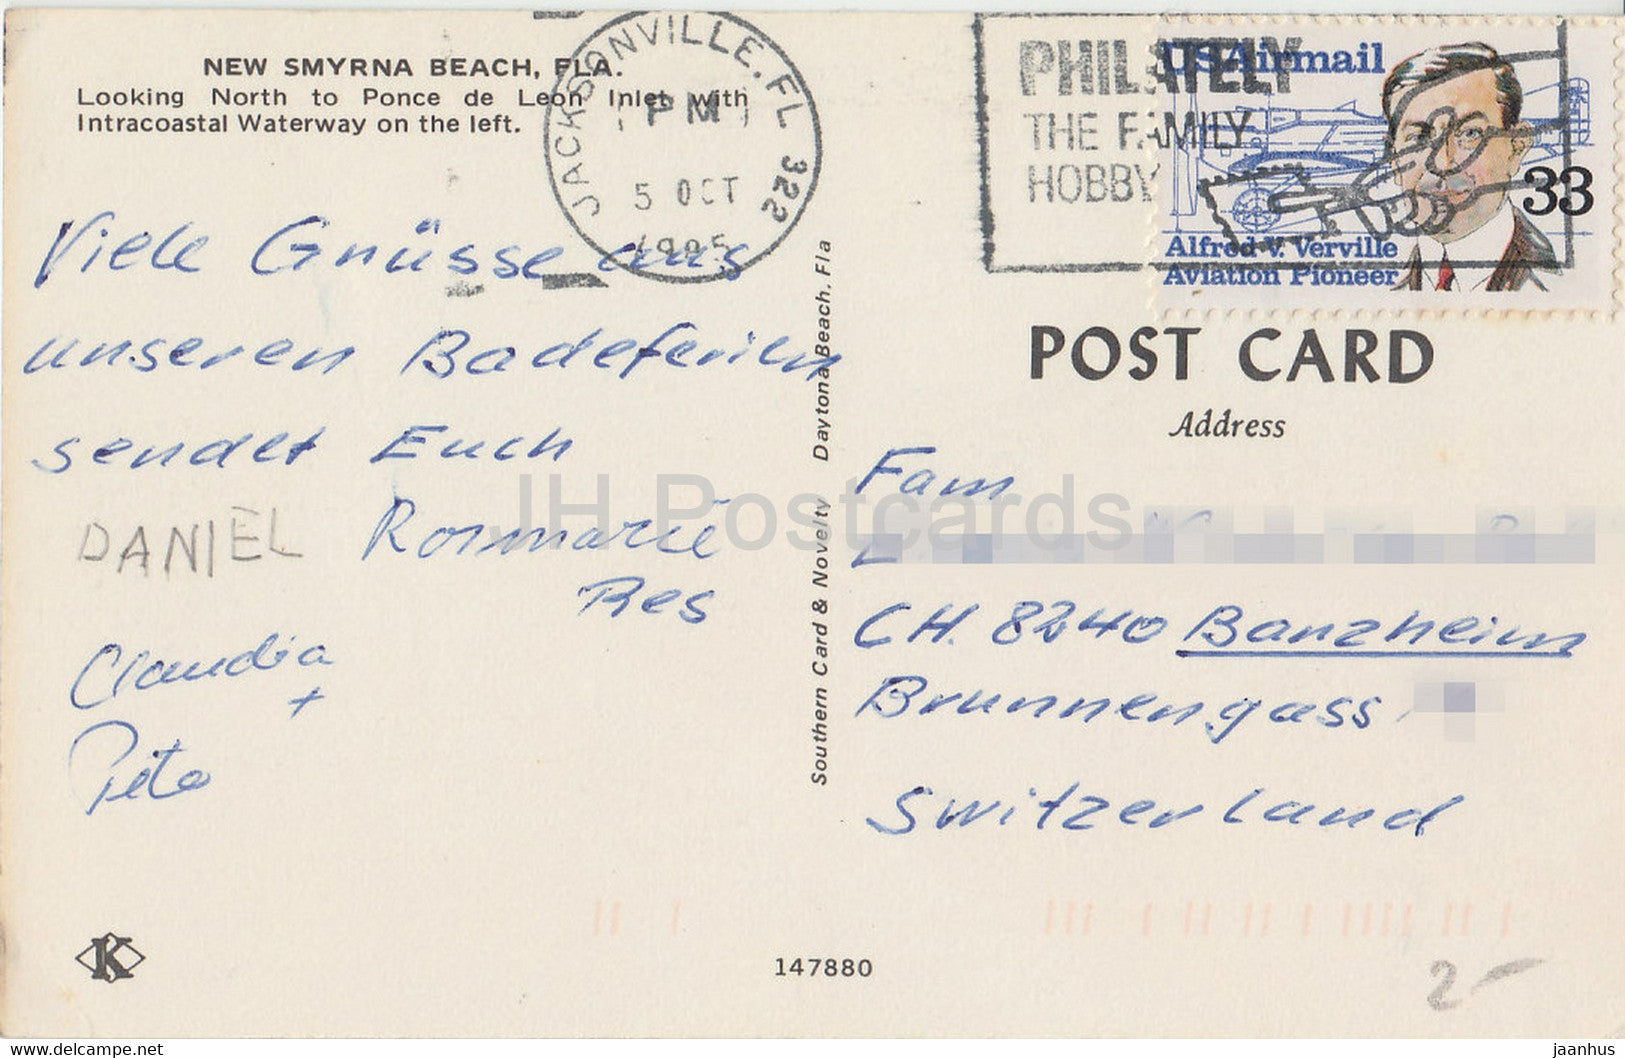 NEW SMYRNA BEACH, FLA.
Looking North to Ponce de Leon Inlet with
Intracoastal Waterway on the left.
JACKSONVILLE, FL 322
PM
5 OCT
PHILATELY
THE FAMILY
HOBBY
US Airmail
33
Alfred V. Verville
Aviation Pioneer
Viele Grüsse aus
unseren Badeferien
sendet Euch
DANIEL Rosmarie
Res
Claudia
+
Southern Card & Novelty Daytona Beach, Fla
POST CARD
Address
Fam
CH. 8240 Banzheim
Brunnengass
Switzerland
JH Postcards
K
147880
2-
www.delcampe.net
jaanhus